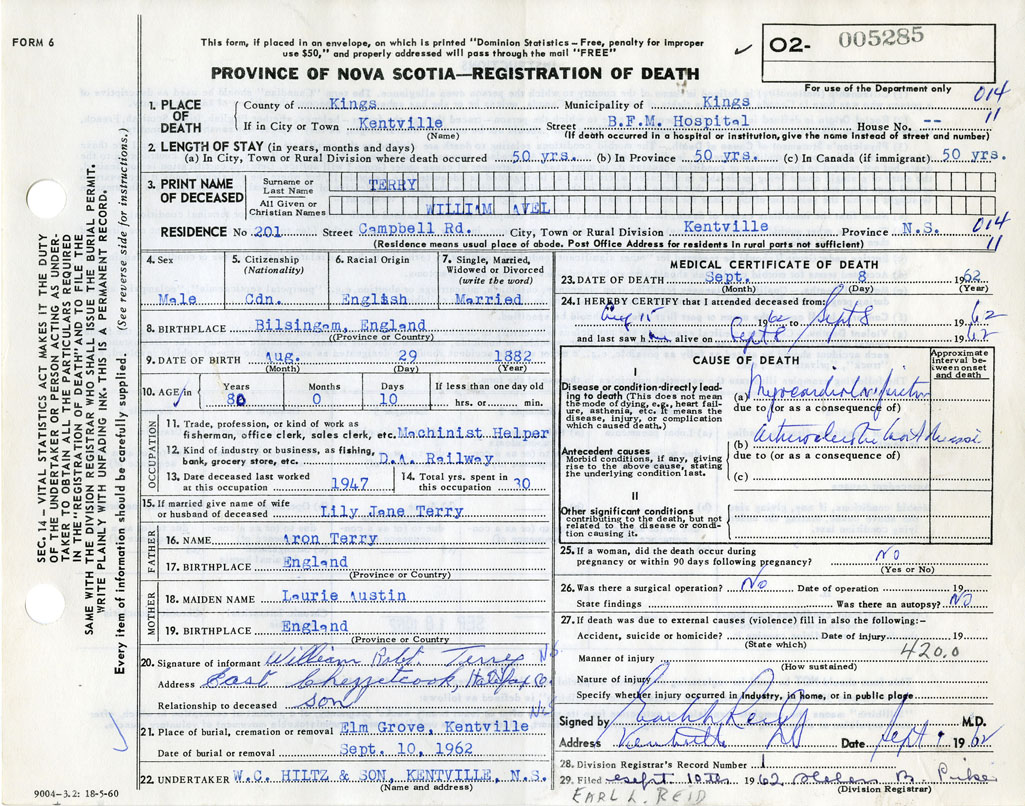 FORM 6
This form, if placed in an envelope, on which is printed "Dominion Statistics—Free, penalty for improper
use $50," and properly addressed will pass through the mail "FREE"
PROVINCE OF NOVA SCOTIA—REGISTRATION OF DEATH
O2- 005285
For use of the Department only
014
11
SEC. 14—VITAL STATISTICS ACT MAKES IT THE DUTY
OF THE UNDERTAKER OR PERSON ACTING AS UNDER-
TAKER TO OBTAIN ALL THE PARTICULARS REQUIRED
IN THE "REGISTRATION OF DEATH" AND TO FILE THE
SAME WITH THE DIVISION REGISTRAR WHO SHALL ISSUE THE BURIAL PERMIT.
WRITE PLAINLY WITH UNFADING INK. THIS IS A PERMANENT RECORD.
Every item of information should be carefully supplied. (See reverse side for instructions.)
1. PLACE OF DEATH
County of Kings Municipality of Kings
If in City or Town Kentville Street B.F.M. Hospital House No. --
(Name) (If death occurred in a hospital or institution, give the name instead of street and number)
2. LENGTH OF STAY (in years, months and days)
(a) In City, Town or Rural Division where death occurred 50 yrs. (b) In Province 50 yrs. (c) In Canada (if immigrant) 50 yrs.
3. PRINT NAME OF DECEASED
Surname or Last Name TERRY
All Given or Christian Names WILLIAM AVEL
RESIDENCE No 201 Street Campbell Rd. City, Town or Rural Division Kentville Province N.S. 014
(Residence means usual place of abode. Post Office Address for residents in rural parts not sufficient) 11
4. Sex
Male
5. Citizenship
(Nationality)
Cdn.
6. Racial Origin
English
7. Single, Married,
Widowed or Divorced
(write the word)
Married
8. BIRTHPLACE Bilsingam, England
(Province or Country)
9. DATE OF BIRTH Aug. 29 1882
(Month) (Day) (Year)
10. AGE in
Years Months Days If less than one day old
80 0 10 hrs. or min.
OCCUPATION
11. Trade, profession, or kind of work as
fisherman, office clerk, sales clerk, etc. Machinist Helper
12. Kind of industry or business, as fishing,
bank, grocery store, etc. D.A. Railway
13. Date deceased last worked
at this occupation 1947
14. Total yrs. spent in
this occupation 30
15. If married give name of wife
or husband of deceased Lily Jane Terry
FATHER
16. NAME Aron Terry
17. BIRTHPLACE England
(Province or Country)
MOTHER
18. MAIDEN NAME Laurie Austin
19. BIRTHPLACE England
(Province or Country)
20. Signature of informant William Robt. Terry
Address East Chezzetcook, Halifax Co.
Relationship to deceased son
21. Place of burial, cremation or removal Elm Grove, Kentville
Date of burial or removal Sept. 10, 1962
22. UNDERTAKER W.C. HILTZ & SON, KENTVILLE, N.S.
(Name and address)
9004-3.2: 18-5-60
MEDICAL CERTIFICATE OF DEATH
23. DATE OF DEATH Sept. 8 1962
(Month) (Day) (Year)
24. I HEREBY CERTIFY that I attended deceased from:
Aug 15 1962 to Sept 8 1962
and last saw him alive on Sept 8 1962
CAUSE OF DEATH
Approximate
interval be-
tween onset
and death
I
Disease or condition directly lead-
ing to death (This does not mean
the mode of dying, e.g., heart fail-
ure, asthenia, etc. It means the
disease, injury, or complication
which caused death.)
(a) Myocardial infarction
due to (or as a consequence of)
(b) Arteriosclerotic heart disease
due to (or as a consequence of)
(c)
Antecedent causes
Morbid conditions, if any, giving
rise to the above cause, stating
the underlying condition last.
II
Other significant conditions
contributing to the death, but not
related to the disease or condi-
tion causing it.
25. If a woman, did the death occur during
pregnancy or within 90 days following pregnancy? No
(Yes or No)
26. Was there a surgical operation? No Date of operation 19
State findings Was there an autopsy? No
27. If death was due to external causes (violence) fill in also the following:—
Accident, suicide or homicide? Date of injury 19
(State which)
420.0
Manner of injury
(How sustained)
Nature of injury
Specify whether injury occurred in industry, in home, or in public place
Signed by Earl L Reid M.D.
Address Kentville NS Date Sept 9 1962
28. Division Registrar's Record Number 1
29. Filed Sept 10th 1962 Helen B.
(Division Registrar)
EARL L. REID